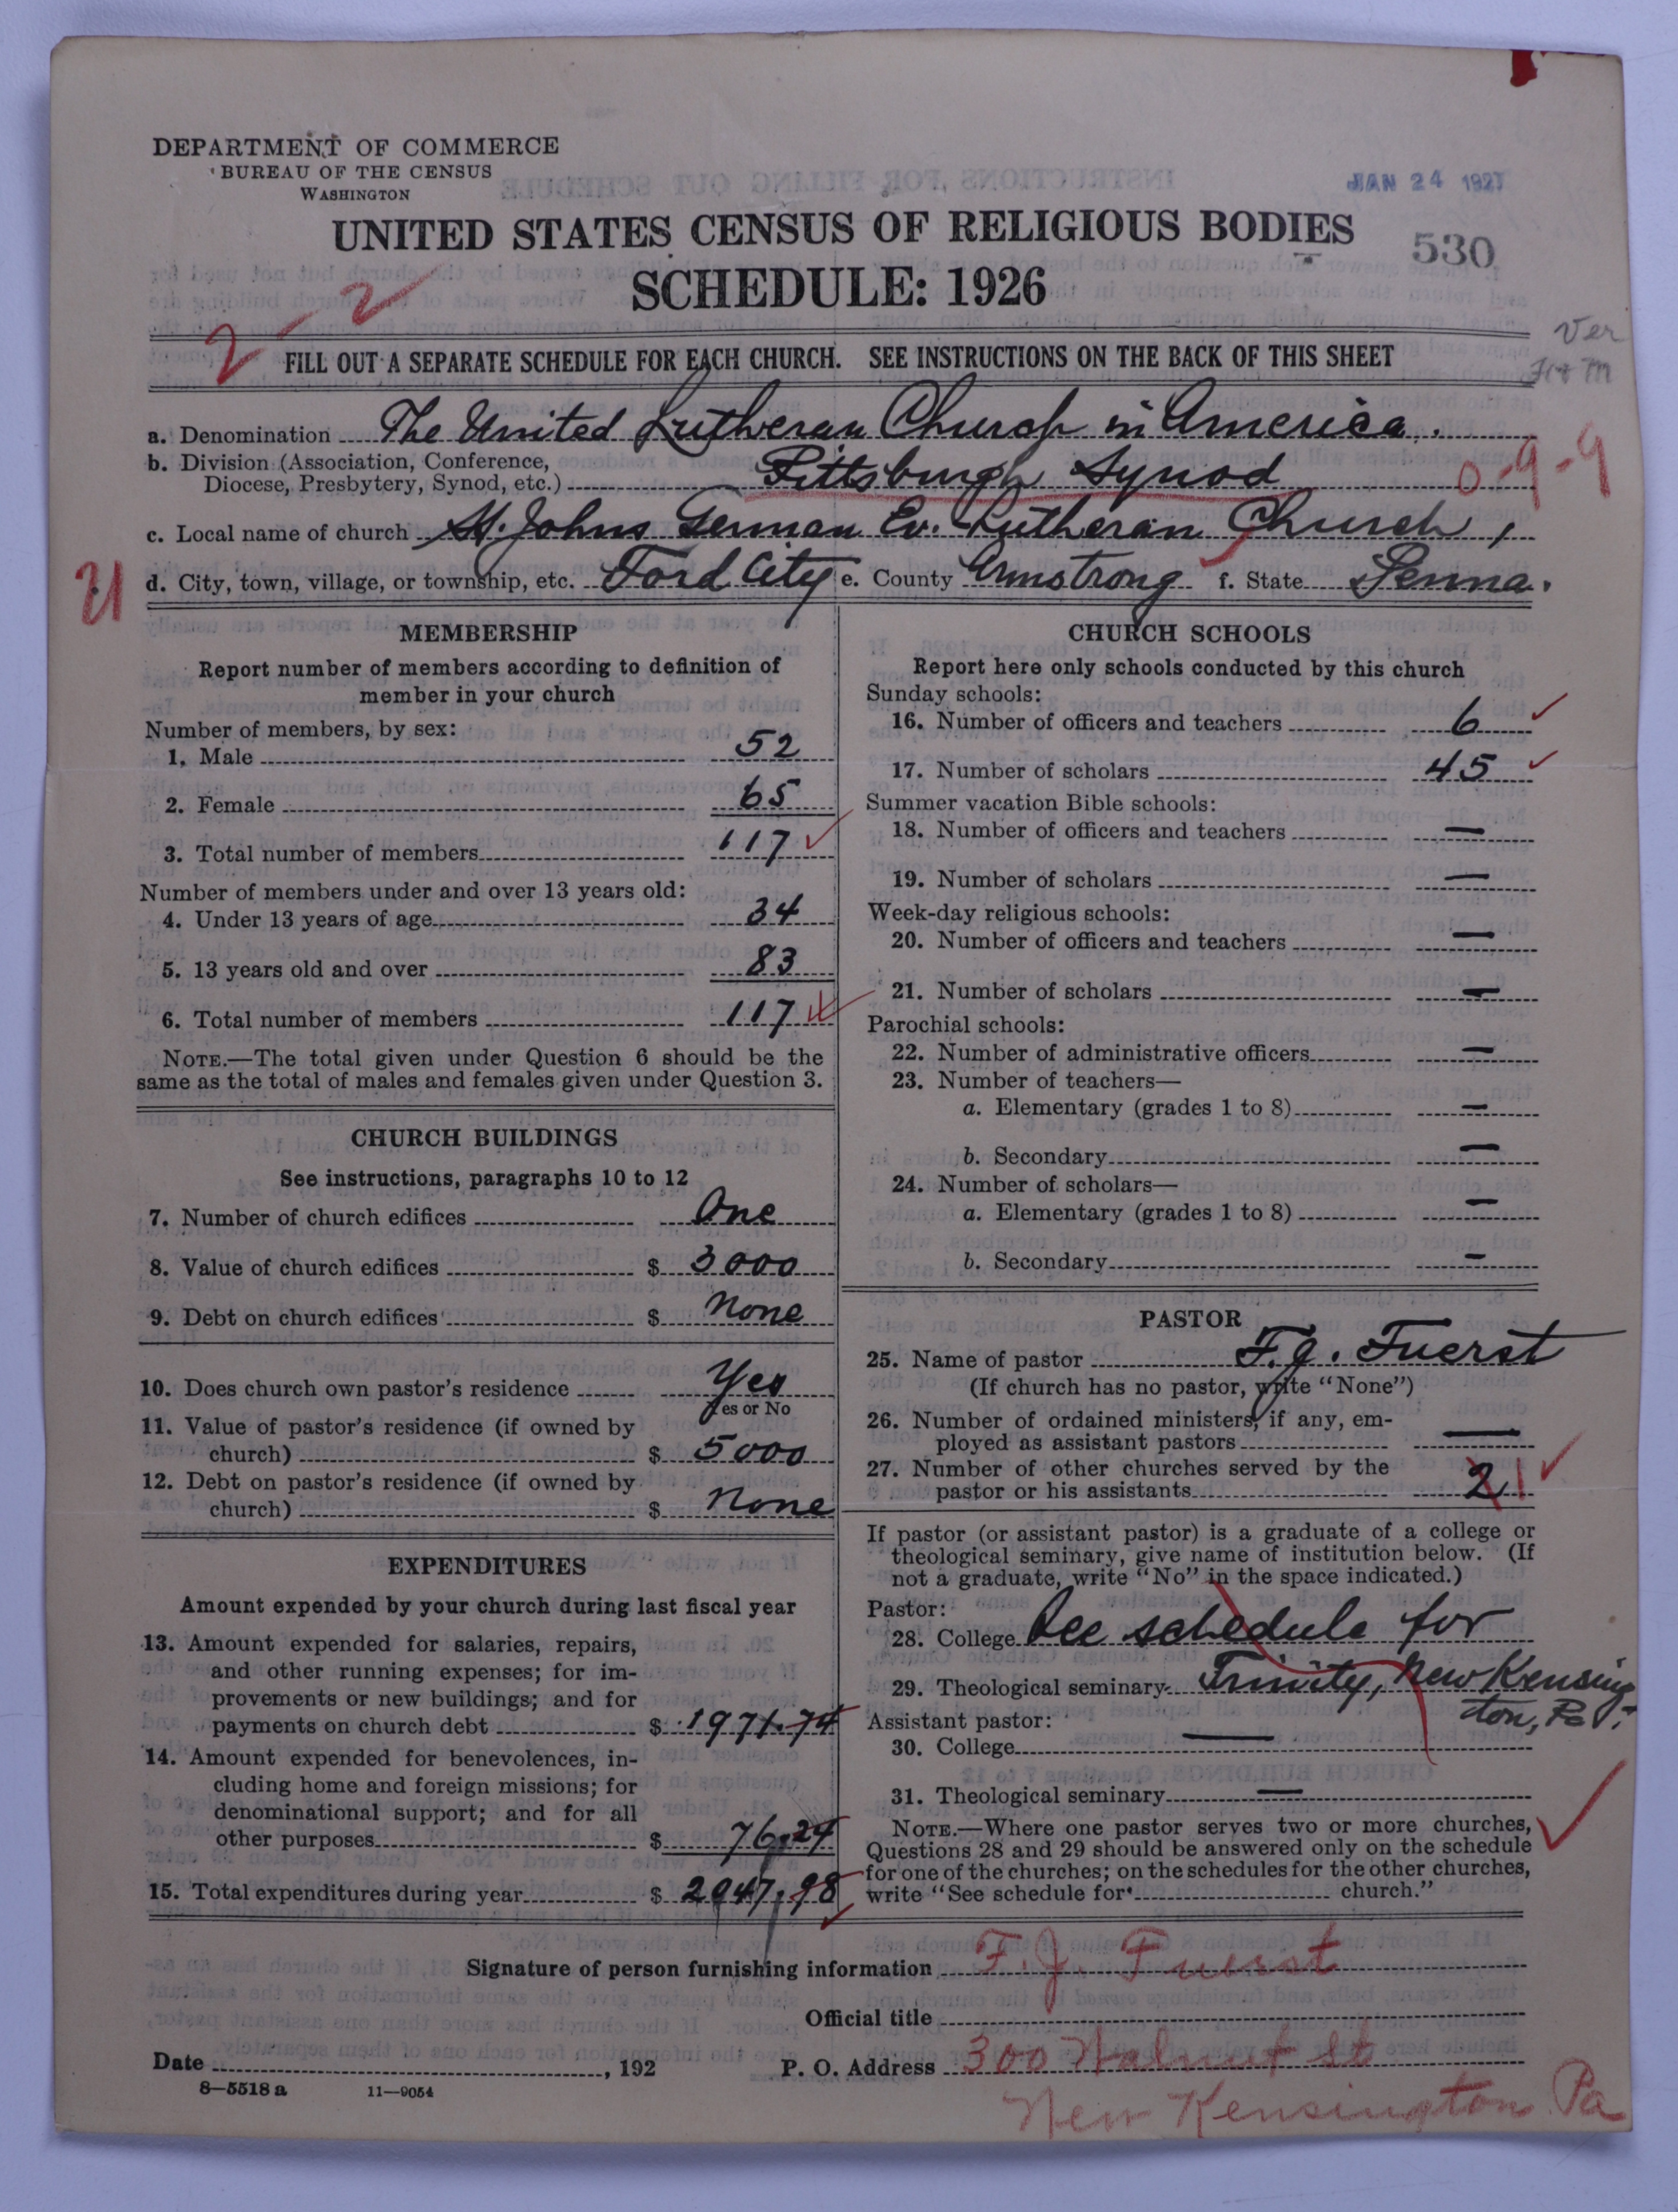 DEPARTMENT OF COMMERCE
BUREAU OF THE CENSUS
WASHINGTON
JAN 24 1927
UNITED STATES CENSUS OF RELIGIOUS BODIES
530
SCHEDULE: 1926
2-2
Ver
FILL OUT A SEPARATE SCHEDULE FOR EACH CHURCH. SEE INSTRUCTIONS ON THE BACK OF THIS SHEET
a. Denomination The United Lutheran Church in America.
b. Division (Association, Conference, Diocese, Presbytery, Synod, etc.) Pittsburgh Synod
0-9-9
c. Local name of church St. Johns German Ev. Lutheran Church,
d. City, town, village, or township, etc. Ford City e. County Armstrong f. State Penna.
MEMBERSHIP
Report number of members according to definition of
member in your church
Number of members, by sex:
1. Male 52
2. Female 65
3. Total number of members 117
Number of members under and over 13 years old:
4. Under 13 years of age 34
5. 13 years old and over 83
6. Total number of members 117
NOTE.—The total given under Question 6 should be the
same as the total of males and females given under Question 3.
CHURCH BUILDINGS
See instructions, paragraphs 10 to 12
7. Number of church edifices One
8. Value of church edifices $ 3000
9. Debt on church edifices $ None
10. Does church own pastor's residence Yes
Yes or No
11. Value of pastor's residence (if owned by
church) $ 5000
12. Debt on pastor's residence (if owned by
church) $ None
EXPENDITURES
Amount expended by your church during last fiscal year
13. Amount expended for salaries, repairs,
and other running expenses; for im-
provements or new buildings; and for
payments on church debt $ 1971.74
14. Amount expended for benevolences, in-
cluding home and foreign missions; for
denominational support; and for all
other purposes $ 76.24
15. Total expenditures during year $ 2047.98
CHURCH SCHOOLS
Report here only schools conducted by this church
Sunday schools:
16. Number of officers and teachers 6
17. Number of scholars 45
Summer vacation Bible schools:
18. Number of officers and teachers —
19. Number of scholars —
Week-day religious schools:
20. Number of officers and teachers —
21. Number of scholars —
Parochial schools:
22. Number of administrative officers —
23. Number of teachers—
a. Elementary (grades 1 to 8) —
b. Secondary —
24. Number of scholars—
a. Elementary (grades 1 to 8) —
b. Secondary —
PASTOR
25. Name of pastor F. J. Fuerst
(If church has no pastor, write "None")
26. Number of ordained ministers, if any, em-
ployed as assistant pastors —
27. Number of other churches served by the
pastor or his assistants 2 1
If pastor (or assistant pastor) is a graduate of a college or
theological seminary, give name of institution below. (If
not a graduate, write "No" in the space indicated.)
Pastor:
28. College See schedule for
29. Theological seminary Trinity, New Kensing
ton, Pa.
Assistant pastor:
30. College —
31. Theological seminary —
NOTE.—Where one pastor serves two or more churches,
Questions 28 and 29 should be answered only on the schedule
for one of the churches; on the schedules for the other churches,
write "See schedule for church."
Signature of person furnishing information F. J. Fuerst
Official title
Date , 192
P. O. Address 300 Walnut St
New Kensington Pa
8—5518 a
11—9054